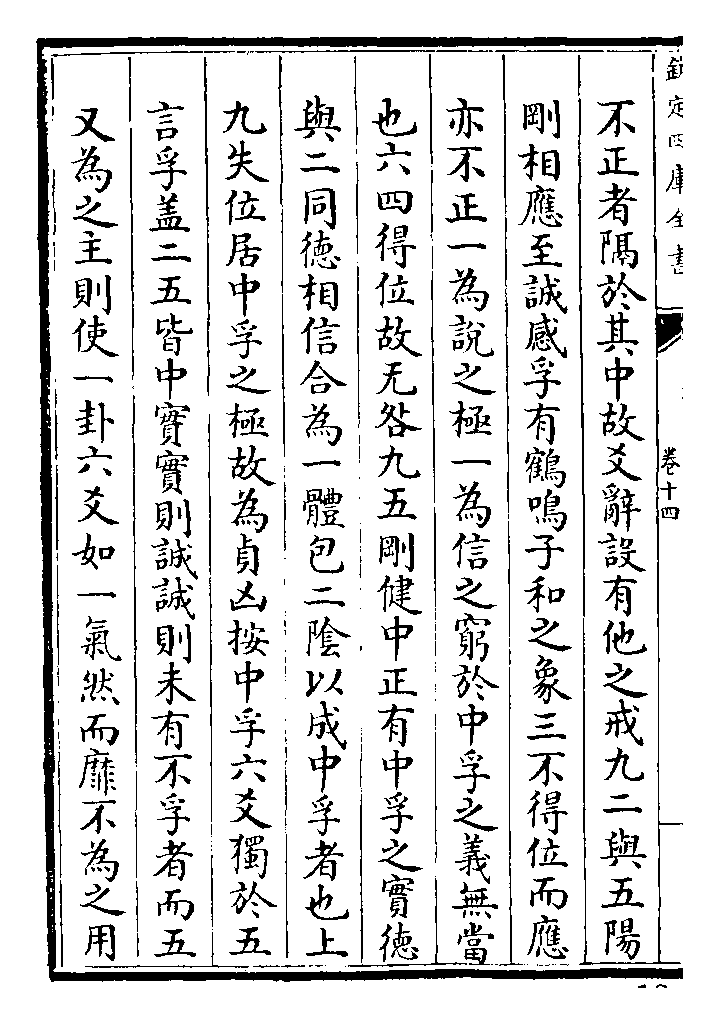 欽定四庫全書
卷十四
不正者隔於其中故爻辭設有他之戒九二與五陽
剛相應至誠感孚有鶴鳴子和之象三不得位而應
亦不正一為說之極一為信之窮於中孚之義無當
也六四得位故无咎九五剛健中正有中孚之實德
與二同德相信合為一體包二陰以成中孚者也上
九失位居中孚之極故為貞凶按中孚六爻獨於五
言孚盖二五皆中實實則誠誠則未有不孚者而五
又為之主則使一卦六爻如一氣然而靡不為之用